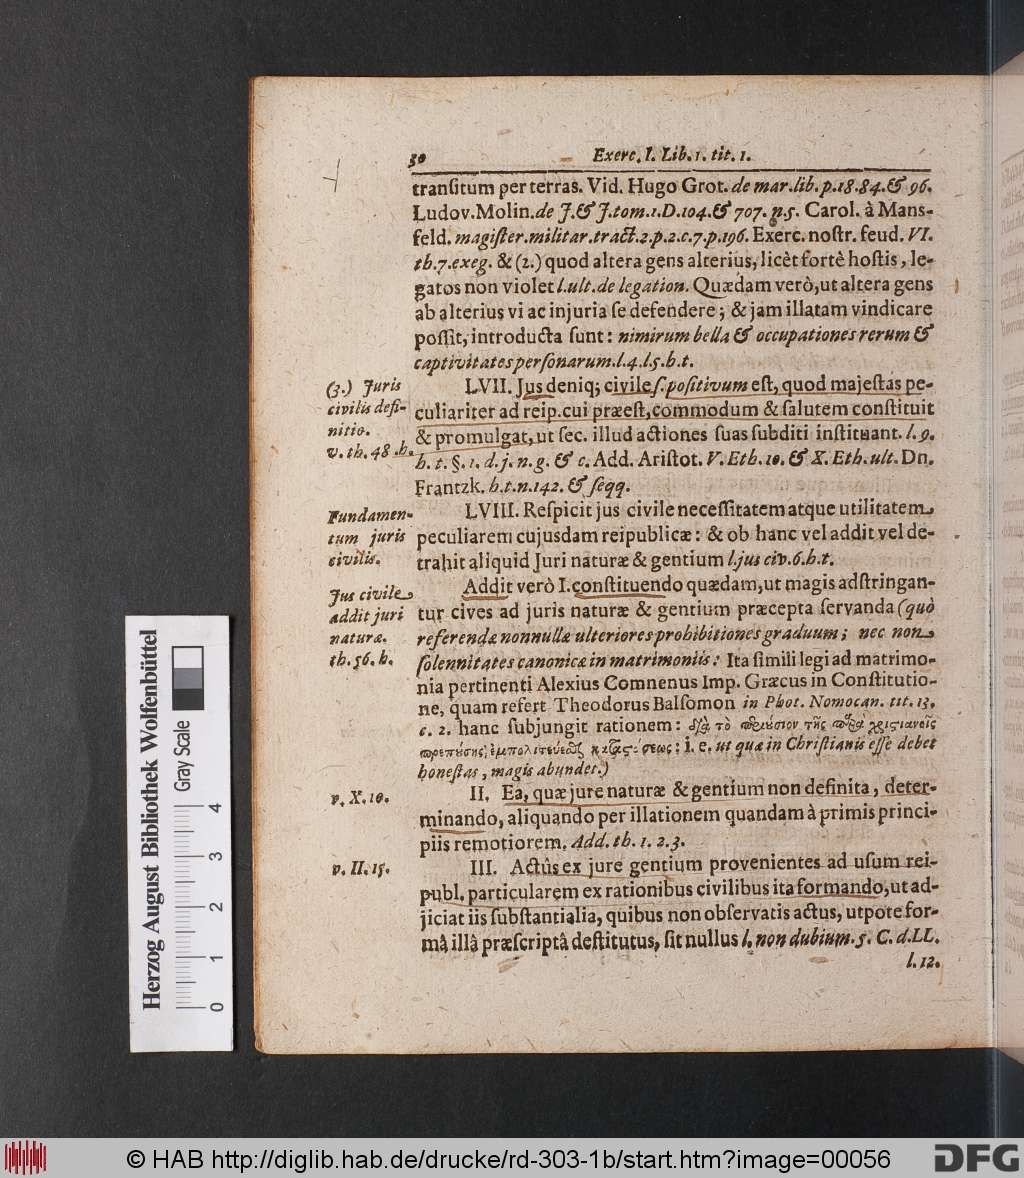 50 Exerc. I. Lib. 1. tit. 1.
transitum per terras. Vid. Hugo Grot. de mar. lib. p. 18. 84. & 96.
Ludov. Molin. de J. & J. tom. 1. D. 104. & 707. n. 5. Carol. à Mans-
feld. magister. militar. tract. 2. p. 2. c. 7. p. 196. Exerc. nostr. feud. VI.
th. 7. exeg. & (2.) quod altera gens alterius, licèt fortè hostis, le-
gatos non violet l. ult. de legation. Quædam verò, ut altera gens
ab alterius vi ac injuria se defendere; & jam illatam vindicare
possit, introducta sunt: nimirum bella & occupationes rerum &
captivitates personarum. l. 4. l. 5. h. t.
(3.) Juris
civilis defi-
nitio.
v. th. 48. h.
LVII. Jus deniq; civile s. positivum est, quod majestas pe-
culiariter ad reip. cui præest, commodum & salutem constituit
& promulgat, ut sec. illud actiones suas subditi instituant. l. 9.
h. t. §. 1. d. j. n. g. & c. Add. Aristot. V. Eth. 10. & X. Eth. ult. Dn.
Frantzk. h. t. n. 142. & seqq.
Fundamen-
tum juris
civilis.
LVIII. Respicit jus civile necessitatem atque utilitatem
peculiarem cujusdam reipublicæ: & ob hanc vel addit vel de-
trahit aliquid Juri naturæ & gentium l. jus civ. 6. h. t.
Jus civile
addit juri
naturæ.
th. 56. h.
Addit verò I. constituendo quædam, ut magis adstringan-
tur cives ad juris naturæ & gentium præcepta servanda (quò
referendæ nonnullæ ulteriores prohibitiones graduum; nec non
solennitates canonicæ in matrimoniis: Ita simili legi ad matrimo-
nia pertinenti Alexius Comnenus Imp. Græcus in Constitutio-
ne, quam refert Theodorus Balsomon in Phot. Nomocan. tit. 13.
c. 2. hanc subjungit rationem: διὰ τὸ τῆς
: i. e. ut quæ in Christianis esse debet
honestas, magis abundet.)
v. X. 10.
II. Ea, quæ jure naturæ & gentium non definita, deter-
minando, aliquando per illationem quandam à primis princi-
piis remotiorem. Add. th. 1. 2. 3.
v. II. 15.
III. Actûs ex jure gentium provenientes ad usum rei-
publ. particularem ex rationibus civilibus ita formando, ut ad-
jiciat iis substantialia, quibus non observatis actus, utpote for-
mâ illâ præscriptâ destitutus, sit nullus l. non dubium. 5. C. d. LL.
l. 12.
Herzog August Bibliothek Wolfenbüttel
Gray Scale
0 1 2 3 4
© HAB http://diglib.hab.de/drucke/rd-303-1b/start.htm?image=00056
DFG